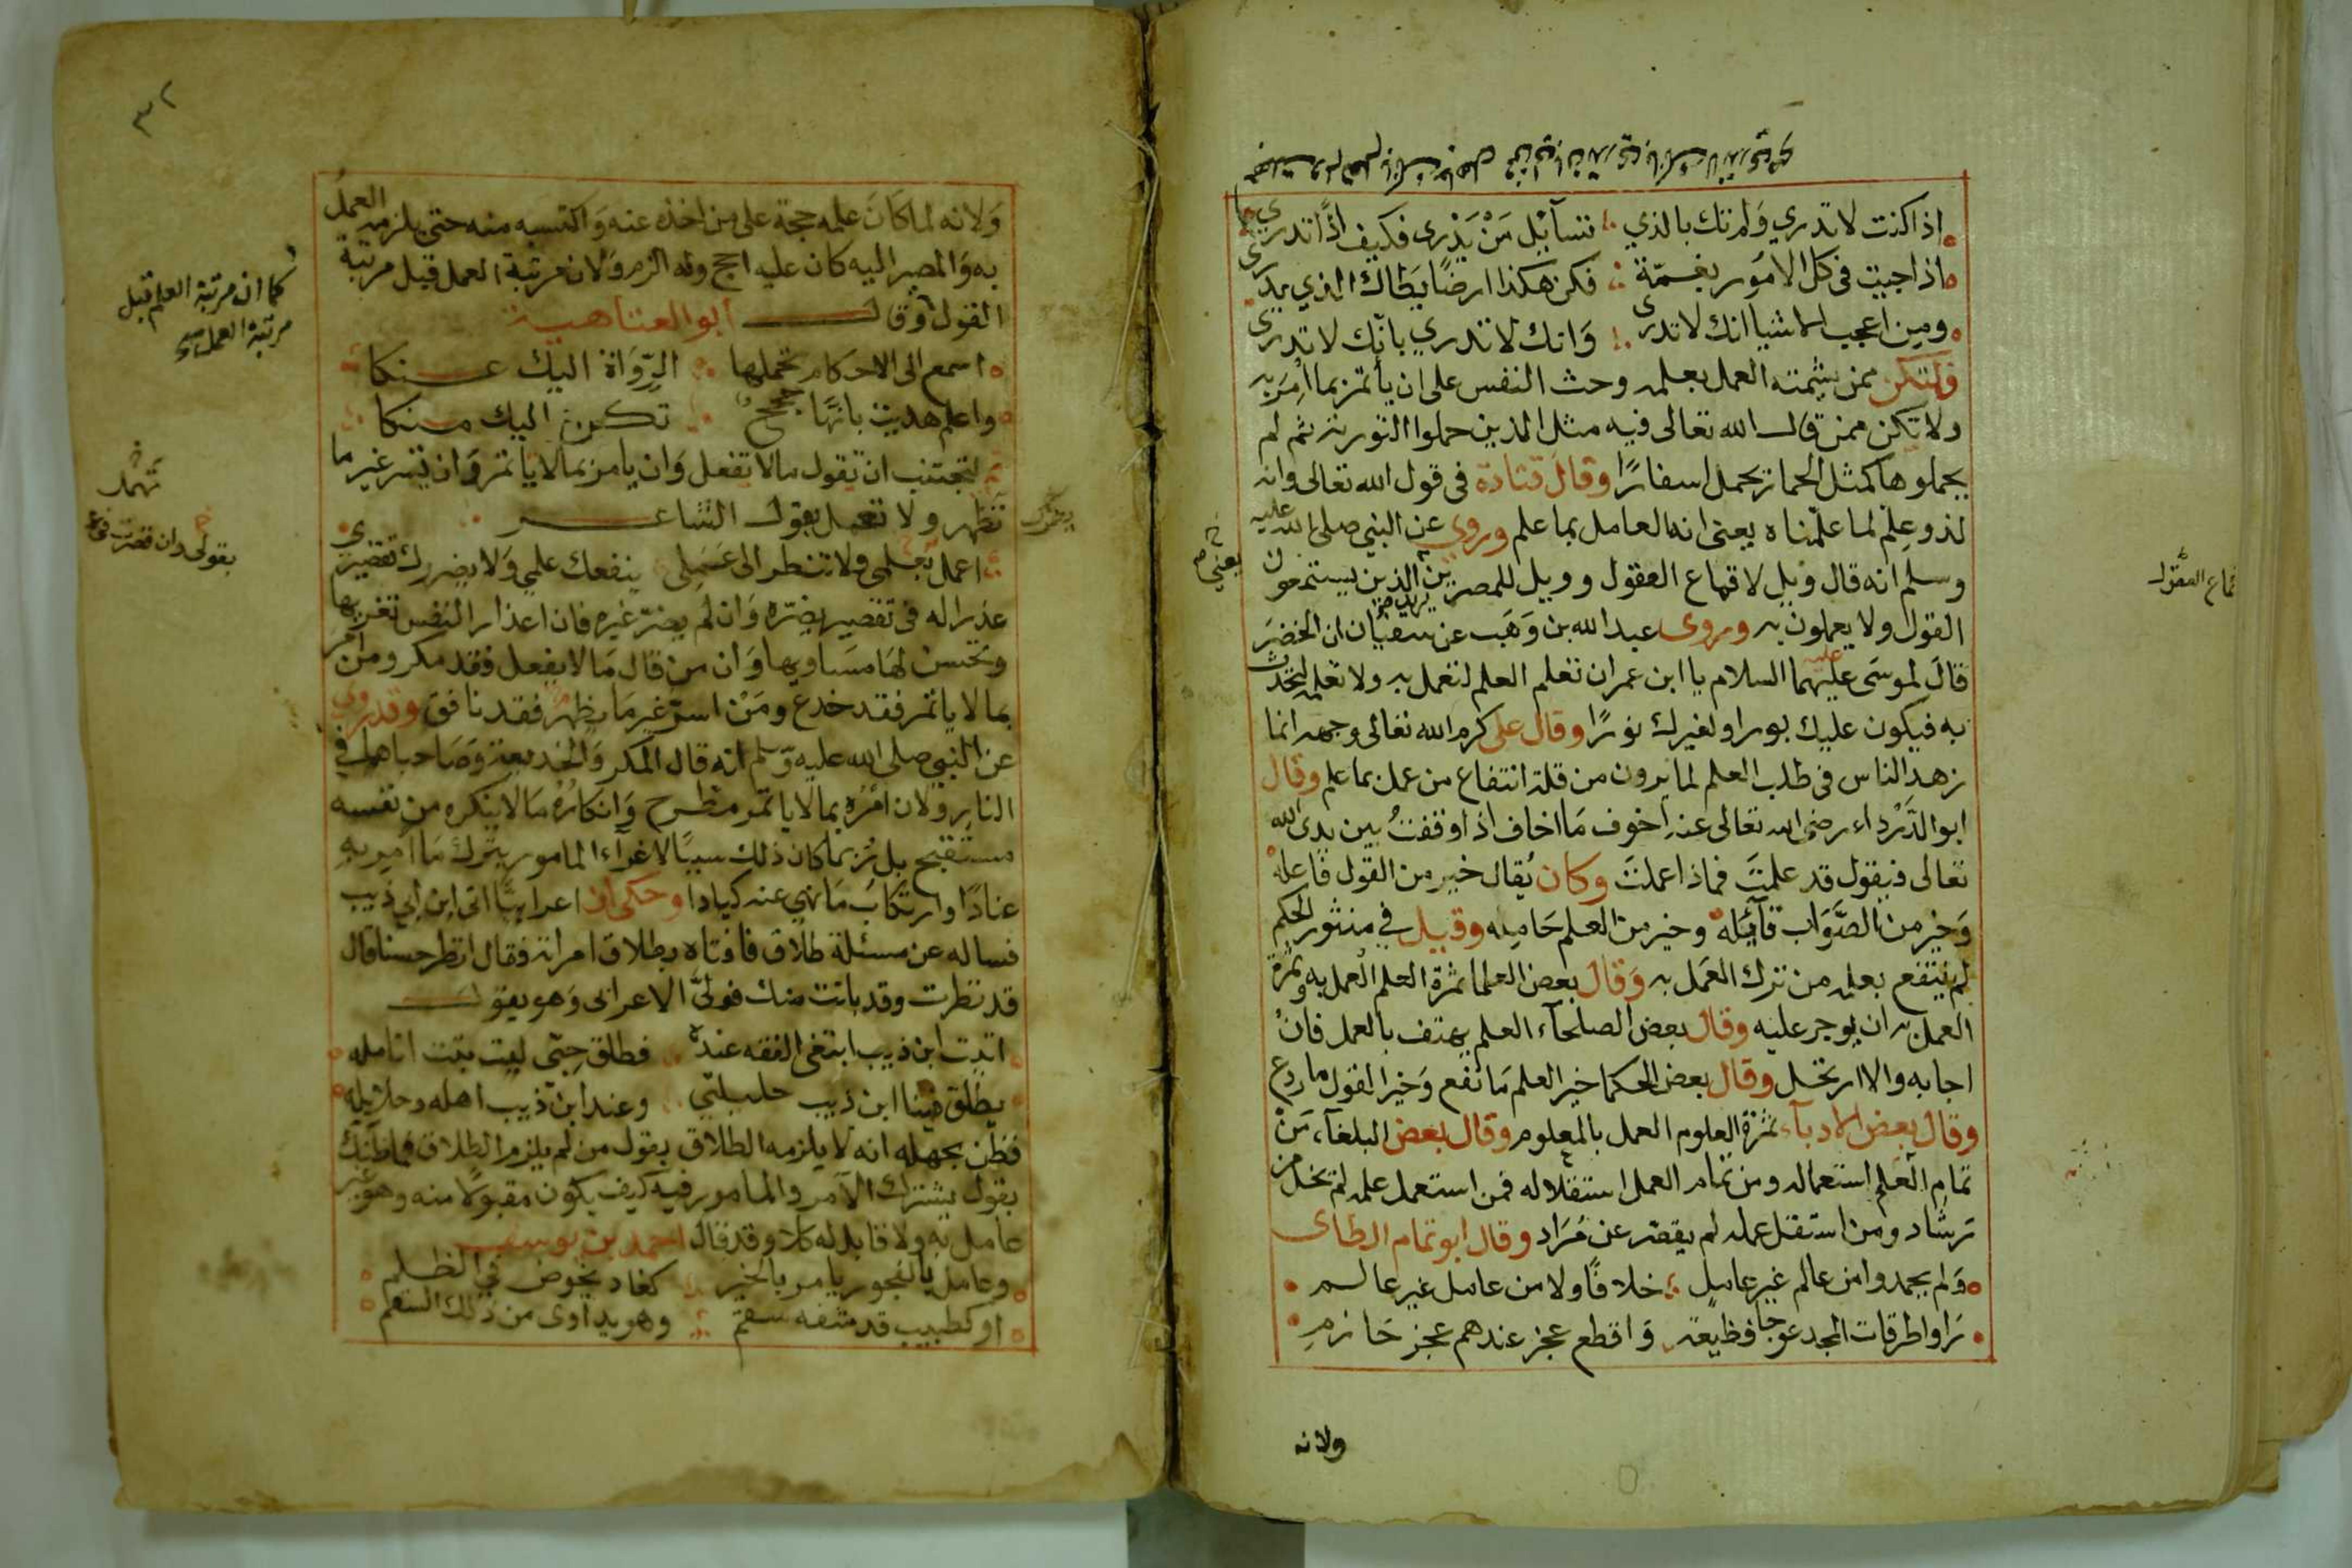 اذا كنت لا تدري ولم تك بالذي تسآئل من يدرى فكيف اذًا تدري
اذا جيت في كل الامور بغمّة فكن هكذا ارضًا يطاك الذي يدرى
ومن اعجب الاشيا انك لا تدرى وانك لا تدري بانّك لا تدرى
ولتكن ممن شيمته العمل بعلمه وحث النفس على ان يأتمر بما اُمِرَ به
ولا تكن ممن قال الله تعالى فيه مثل الذين حملوا التورية ثم لم
يحملوها كمثل الحمار يحمل اسفارًا وقال قتادة في قول الله تعالى وانه
لذو علم لما علّمناه يعنى انه العامل بما علم وروي عن النبي صلى الله عليه
وسلم انه قال ويل لاقماع القول وويل للمصرين الذين يستمعون
القول ولا يعملون به وروى عبد الله بن وَهَب عن سفيان ان الخضرَ
قالَ لموسَى عليهما السلام يا ابن عمران تعلم العلم لتعمل به ولا تعلمه لتحدث
به فيكون عليك بورا ولغيرك نورًا وقال على كرم الله تعالى وجهه انما
زهد الناس في طلب العلم لما يرون من قلة انتفاع من عمل بما علم وقال
ابو الدَّرْداء رضى الله تعالى عنه اخوف مَا اخاف اذا وقفتُ بين يدى الله
تعالى فيقول قد علمتَ فماذا عملتَ وكان يُقال خير من القول فاعله
وَخير من الصَّوَاب قآئله وخير من العلم حَامِله وقيل في منثور الحكم
لم ينتفع بعلمه من ترك العَمل به وَقال بعض العلما ثمرة العلم العمل به وثمرة
العمل به ان يوجر عليه وقال بعض الصلحآء العلم يهتف بالعمل فان
اجابه والا ارتحل وقال بعض الحكما خير العلم مَا نفع وَخير القول ما ردع
وقال بعض الادبآء ثمرة العلوم العمل بالمعلوم وقال بعض البلغآء مَنْ
تمام العلم استعماله ومن تمام العمل استقلاله فمن استعمل علمه لم يخل من
رشاد ومن استقل عمله لم يقصر عن مُرَاد وقال ابو تمام الطاى
وَلم يحمدوا من عالم غير عامل خلافًا ولا من عامل غير عالم
رَاوا طرقات المجد عوجا فظيعة وَاقطع عجز عندهم عجز حَازم
ولانه
وَلانه لما كَانَ علمه حجة على من اخذه عنه وَاكتسبه منه حتى يلزمه العمل
به وَالمصير اليه كان عليه احج وله الزم وَلان مرتبة العمل قبل مرتبة
القول وقال ابو العتاهية
اسمع الى الاحكام تحملها الرّوَاة اليك عنكا
واعلم هديت بانّها حجج تكون اليك منكا
ثم لتجتنب ان تقول مالا تفعل وَان يامر بما لا ياتمر وَان تسر غير ما
تظهر ولا تجعل بقول الشاعر
اعمل بعلمى ولا تنظر الى عَمَلى ينفعك علمي وَلا يضررك تقصيرى
عذيرا له في تقصير يضرّه وَان لم يضرّ غيره فان اعذار النفس تغريها
وتحسن لهَا مسَاويها وَان من قال مَا لا يفعل فقد مكر ومن امَرَ
بما لا ياتمر فقد خدع ومَنْ اسرّ غير مَا يظهر فقد نافق وقد روي
عن النبي صلى الله عليه وَسلم انه قال المكر وَالخديعة وَصَاحباهما في
النار ولان امْرُه بما لا ياتمر مطرح وَانكارُه مَا لا ينكره من نفسه
مستقبح بل رُبما كان ذلك سببًا لاغرآء المامور بترك مَا اُمِر به
عنادًا وارتكابُ مَا نهي عنه كيادا وحكى ان اعرابيًّا اتى ابن ابي ذيب
فساله عن مسئلة طلاق فافتاه بطلاق امراته فقال انظر حسنا قال
قد نظرت وقد بانت منك فولىّ الاعرابى وَهو يقول
اتيت ابن ذيب ابتغى الفقه عنده فطلق حِبّى ليت بتت انامله
يطلق فينا ابن ذيب حليلتي وعند ابن ذيب اهله وحلايله
فظن بجهله انه لا يلزمه الطلاق بقول من لم يلزم الطلاق فما ظنّك
بقول يشترك الآمر والمامور فيه كيف يكون مقبولًا منه وهو غير
عامل به ولا قابل له كلا وقد قال احمد بن يوسف
وعامل بالفجور يامر بالخير كهاد يخوض في الظلم
او كطبيب قد شفه سقم وهو يداوى من ذلك السقم
٣٢
كما ان مرتبة العلم قبل
مرتبة العمل صح
بقولى وان قصرت في